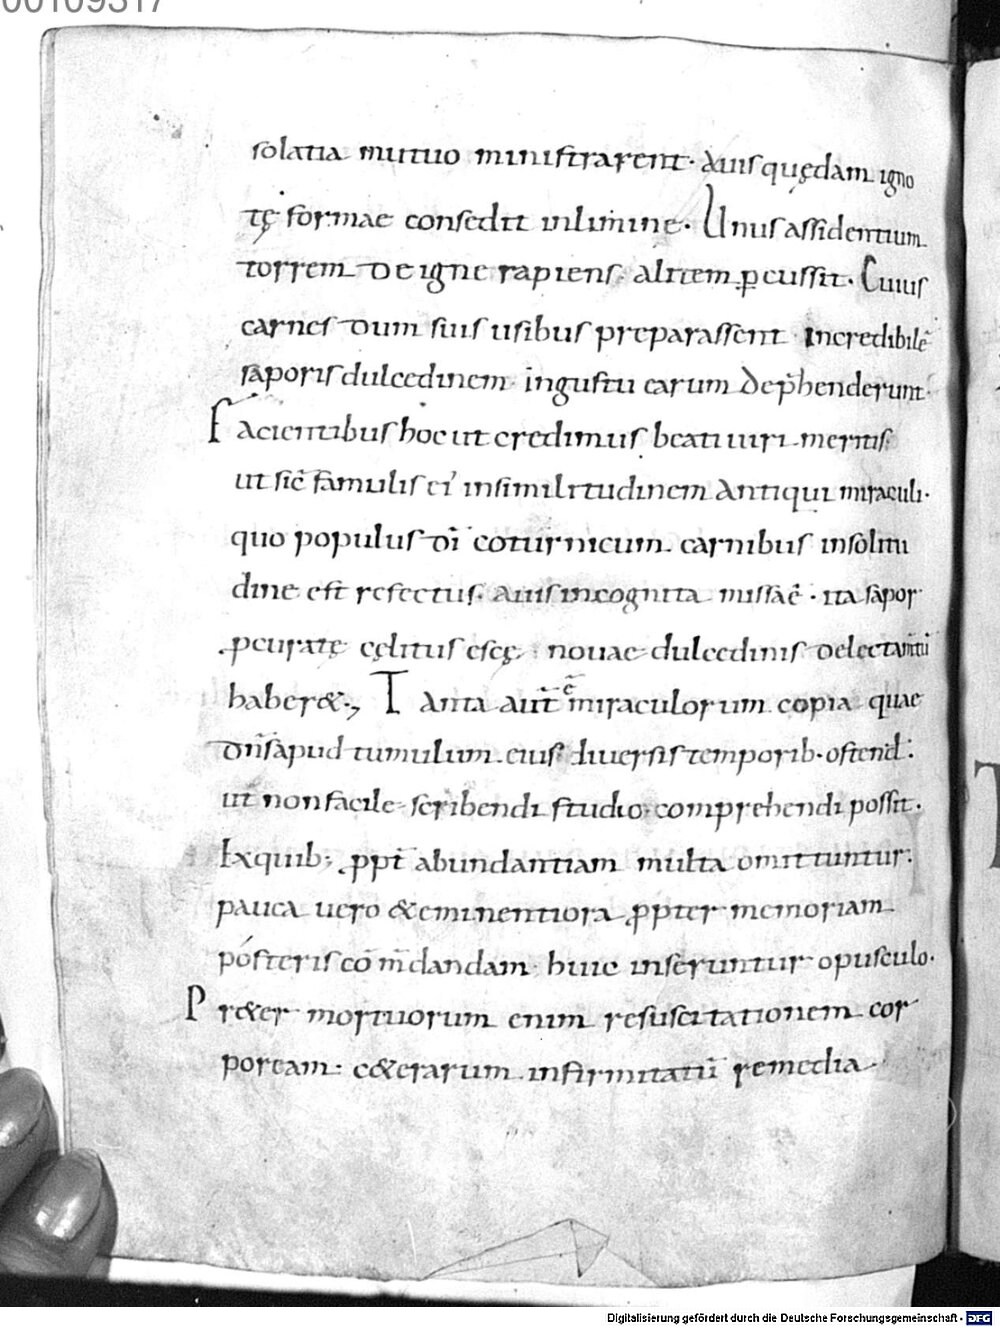 00109317
solatia mutuo ministrarent· Auis quędam igno
tę formae consedit in limine· Unus assidentium
torrem de igne rapiens· alitem ꝑcussit· Cuius
carnes dum suis usibus preparassent· incredibilē
saporis dulcedinem· in gustu earum dep̄henderunt·
Facientibus hoc ut credimus beati uiri meritis·
ut sic̄ famulis ei' in similitudinem antiqui miraculi·
quo populus dī coturnicum carnibus in solitu
dine est refectus· auis incognita missa ē· ita sapor
ꝑ curatę cęlitus escę· nouae dulcedinis delectamtū
haber&·, Tanta aut̄ ē miraculorum copia quae
dn̄s apud tumulum eius diuersis temporib· ostend·
ut non facile scribendi studio· comprehendi possit·
Ex quib; ꝓpt̄ abundantiam multa omittuntur·
pauca uero & eminentiora ꝓpter memoriam
posteris cōm̄dandam· huic inseruntur opusculo·
Pr&er mortuorum enim resuscitationem cor
poream· c&erarum infirmitatū remedia
Digitalisierung gefördert durch die Deutsche Forschungsgemeinschaft - DFG